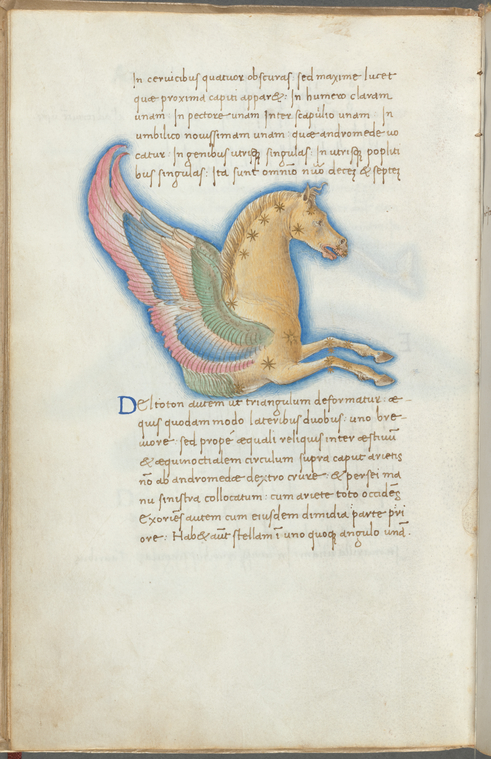 In cervicibus quatuor obscuras: sed maxime lucet
quæ proxima capiti apparet: In humero claram
unam: In pectore unam Inter scapulio unam: In
umbilico novissimam unam: quæ andromede vo
catur: In genibus utrisq singulas: In utrisq popliti
bus singulas: Ita sunt omnio decez & septez
Deltoton autem ut triangulum deformatur: æ-
quis quodam modo lateribus duobus: uno bre
viore: sed propé æquali reliquis inter æstivū
& æquinoctialem circulum supra caput arietis
nō ab andromedæ dextro crure: & persei ma
nu sinistra collocatum: cum ariete toto occidēs
Exoriēs autem cum eiusdem dimidia parte pri
ore: Habet aut stellam ī uno quoq angulo unā.